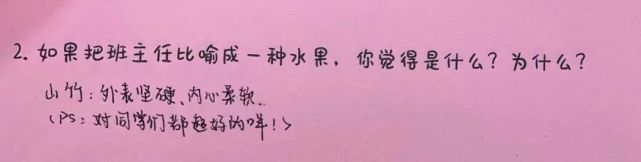 2. 如果把班主任比喻成一种水果，你觉得是什么？为什么？
山竹：外表坚硬、内心柔软.
(PS：对同学们都超好的咩！>